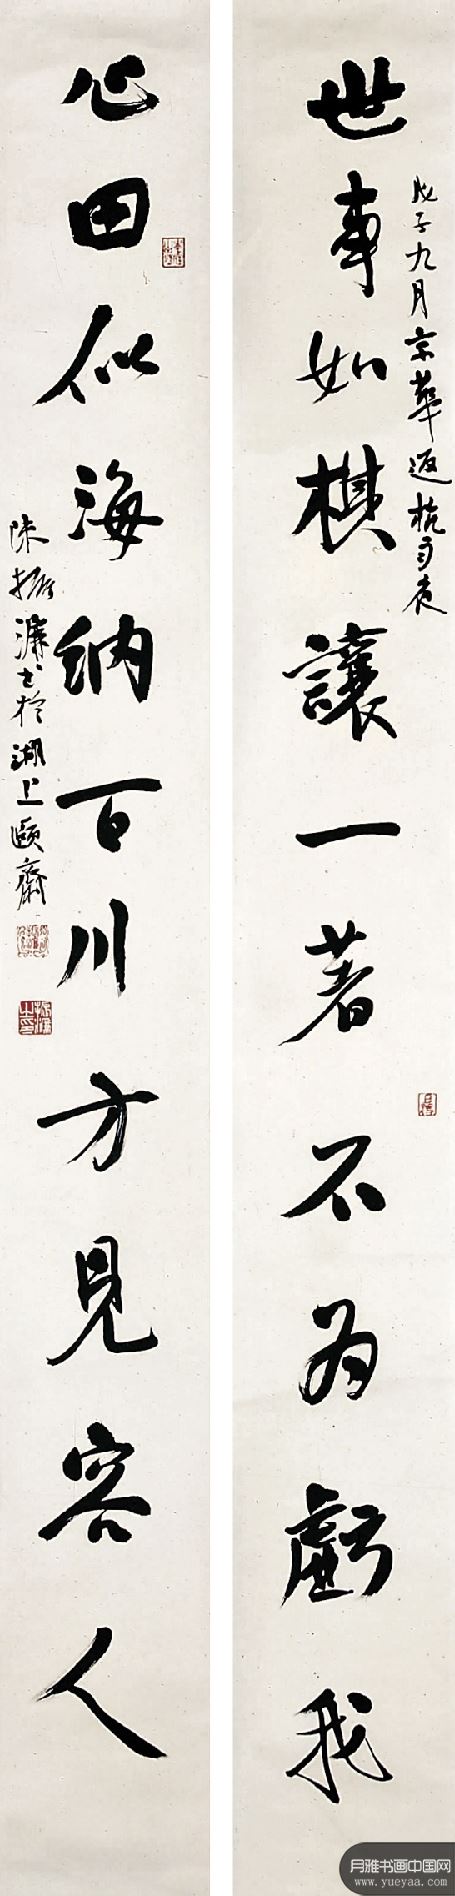 世事如棋讓一著不为虧我
戊子九月京華返杭
心田似海納百川方見容人
陳振濂书於湖上頤齋
月雅书画中国网
www.yueyaa.com